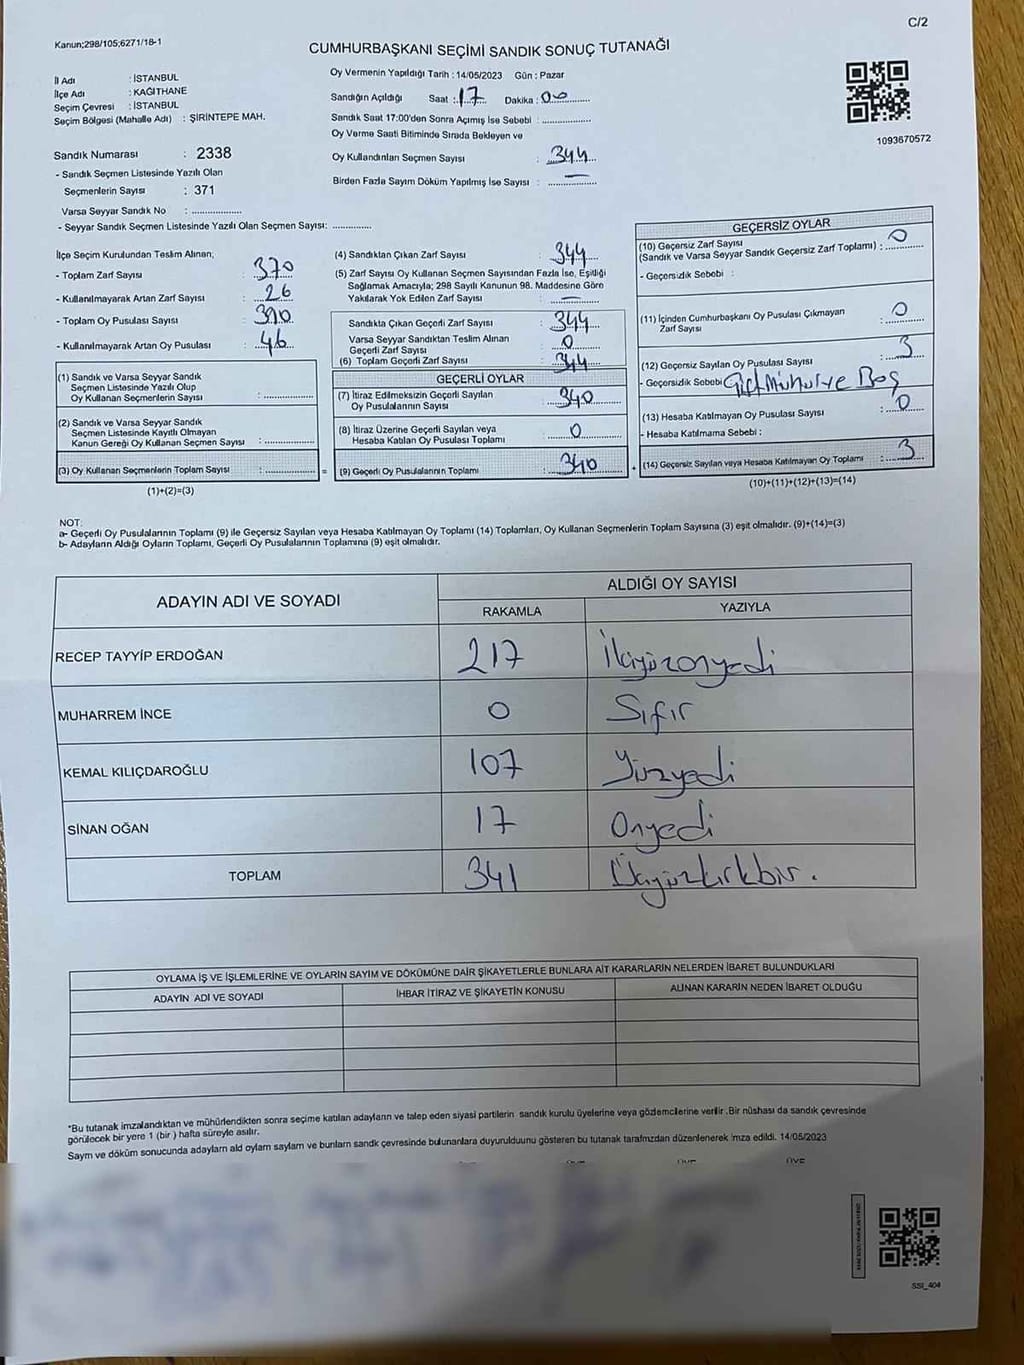 C/2
Kanun;298/105;6271/18-1
CUMHURBAŞKANI SEÇİMİ SANDIK SONUÇ TUTANAĞI
İl Adı : İSTANBUL
İlçe Adı : KAĞITHANE
Seçim Çevresi : İSTANBUL
Seçim Bölgesi (Mahalle Adı) : ŞİRİNTEPE MAH.
Oy Vermenin Yapıldığı Tarih : 14/05/2023 Gün : Pazar
Sandığın Açıldığı Saat : 17 Dakika : 00
Sandık Saat 17:00'den Sonra Açımış İse Sebebi :
Oy Verme Saati Bitiminde Sırada Bekleyen ve
Oy Kullandırılan Seçmen Sayısı : 344
Birden Fazla Sayım Döküm Yapılmış İse Sayısı : —
1093670572
Sandık Numarası : 2338
- Sandık Seçmen Listesinde Yazılı Olan
Seçmenlerin Sayısı : 371
Varsa Seyyar Sandık No :
- Seyyar Sandık Seçmen Listesinde Yazılı Olan Seçmen Sayısı:
İlçe Seçim Kurulundan Teslim Alınan;
- Toplam Zarf Sayısı : 370
- Kullanılmayarak Artan Zarf Sayısı : 26
- Toplam Oy Pusulası Sayısı : 390
- Kullanılmayarak Artan Oy Pusulası : 46
(1) Sandık ve Varsa Seyyar Sandık
Seçmen Listesinde Yazılı Olup
Oy Kullanan Seçmenlerin Sayısı :
(2) Sandık ve Varsa Seyyar Sandık
Seçmen Listesinde Kayıtlı Olmayan
Kanun Gereği Oy Kullanan Seçmen Sayısı :
(3) Oy Kullanan Seçmenlerin Toplam Sayısı : =
(1)+(2)=(3)
(4) Sandıktan Çıkan Zarf Sayısı : 344
(5) Zarf Sayısı Oy Kullanan Seçmen Sayısından Fazla İse, Eşitliği
Sağlamak Amacıyla; 298 Sayılı Kanunun 98. Maddesine Göre
Yakılarak Yok Edilen Zarf Sayısı : —
Sandıkta Çıkan Geçerli Zarf Sayısı : 344
Varsa Seyyar Sandıktan Teslim Alınan
Geçerli Zarf Sayısı : 0
(6) Toplam Geçerli Zarf Sayısı : 344
GEÇERLİ OYLAR
(7) İtiraz Edilmeksizin Geçerli Sayılan
Oy Pusulalarının Sayısı : 340
(8) İtiraz Üzerine Geçerli Sayılan veya
Hesaba Katılan Oy Pusulası Toplamı : 0
(9) Geçerli Oy Pusulalarının Toplamı : 340 +
GEÇERSİZ OYLAR
(10) Geçersiz Zarf Sayısı
(Sandık ve Varsa Seyyar Sandık Geçersiz Zarf Toplamı) : 0
- Geçersizlik Sebebi :
(11) İçinden Cumhurbaşkanı Oy Pusulası Çıkmayan
Zarf Sayısı : 0
(12) Geçersiz Sayılan Oy Pusulası Sayısı : 3
- Geçersizlik Sebebi ve Boş
(13) Hesaba Katılmayan Oy Pusulası Sayısı : 0
- Hesaba Katılmama Sebebi :
(14) Geçersiz Sayılan veya Hesaba Katılmayan Oy Toplamı : 3
(10)+(11)+(12)+(13)=(14)
NOT:
a- Geçerli Oy Pusulalarının Toplamı (9) ile Geçersiz Sayılan veya Hesaba Katılmayan Oy Toplamı (14) Toplamları, Oy Kullanan Seçmenlerin Toplam Sayısına (3) eşit olmalıdır. (9)+(14)=(3)
b- Adayların Aldığı Oyların Toplamı, Geçerli Oy Pusulalarının Toplamına (9) eşit olmalıdır.
ADAYIN ADI VE SOYADI ALDIĞI OY SAYISI
RAKAMLA YAZIYLA
RECEP TAYYİP ERDOĞAN 217 İkiyüzonyedi
MUHARREM İNCE 0 Sıfır
KEMAL KILIÇDAROĞLU 107 Yüzyedi
SİNAN OĞAN 17 Onyedi
TOPLAM 341 Üçyüzkırkbir.
OYLAMA İŞ VE İŞLEMLERİNE VE OYLARIN SAYIM VE DÖKÜMÜNE DAİR ŞİKAYETLERLE BUNLARA AİT KARARLARIN NELERDEN İBARET BULUNDUKLARI
ADAYIN ADI VE SOYADI İHBAR İTİRAZ VE ŞİKAYETİN KONUSU ALINAN KARARIN NEDEN İBARET OLDUĞU
*Bu tutanak imzalandıktan ve mühürlendikten sonra seçime katılan adayların ve talep eden siyasi partilerin sandık kurulu üyelerine veya gözlemcilerine verilir .Bir nüshası da sandık çevresinde
görülecek bir yere 1 (bir ) hafta süreyle asılır.
Sayım ve döküm sonucunda adayların aldı oyların sayıları ve bunların sandık çevresinde bulunanlara duyurulduunu gösteren bu tutanak tarafımızdan düzenlenerek imza edildi. 14/05/2023
ÜYE ÜYE
SSI_404